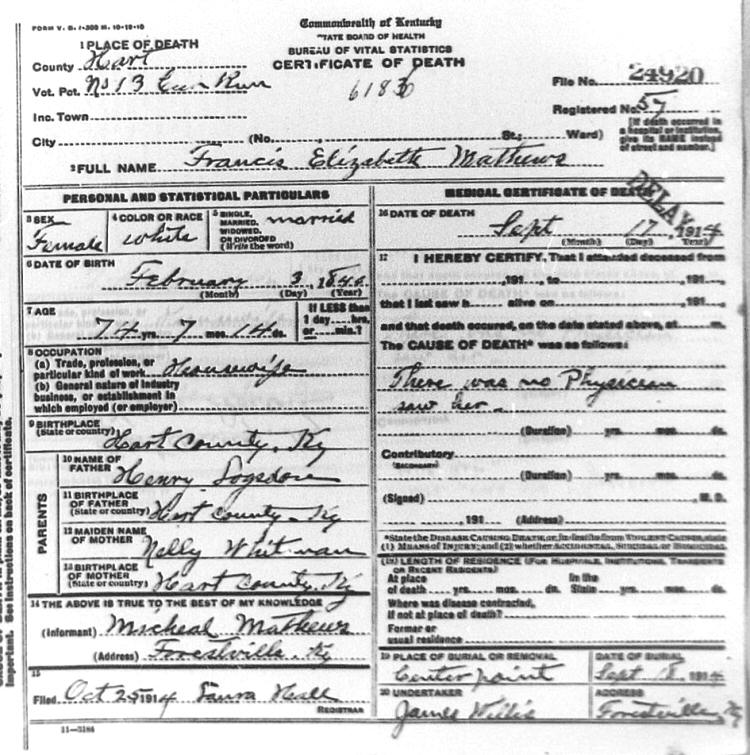 FORM V. S. 1-300 M. 10-19-10
Commonwealth of Kentucky
STATE BOARD OF HEALTH
BUREAU OF VITAL STATISTICS
CERTIFICATE OF DEATH
6183
1 PLACE OF DEATH
County Hart
Vot. Pct. No 13 Run
Inc. Town
City (No. St.; Ward)
File No. 24920
Registered No. 57
[If death occurred in a hospital or institution, give its NAME instead of street and number.]
2 FULL NAME Francis Elizabeth Mathews
PERSONAL AND STATISTICAL PARTICULARS
3 SEX Female
4 COLOR OR RACE white
5 SINGLE, MARRIED, WIDOWED, OR DIVORCED (Write the word) married
6 DATE OF BIRTH February 3, 1840
(Month) (Day) (Year)
7 AGE 74 yrs. 7 mos. 14 ds.
If LESS than 1 day....hrs. or....min.?
8 OCCUPATION
(a) Trade, profession, or particular kind of work Housewife
(b) General nature of industry business, or establishment in which employed (or employer)
9 BIRTHPLACE (State or country) Hart County, Ky
PARENTS
10 NAME OF FATHER Henry Logsdon
11 BIRTHPLACE OF FATHER (State or country) Hart County Ky
12 MAIDEN NAME OF MOTHER Nelly Whitman
13 BIRTHPLACE OF MOTHER (State or country) Hart County, Ky
14 THE ABOVE IS TRUE TO THE BEST OF MY KNOWLEDGE
(Informant) Micheal Mathews
(Address) Forestville Ky
15
Filed Oct 25 1914 Laura
REGISTRAR
11-3184
MEDICAL CERTIFICATE OF DEATH
DELAY
16 DATE OF DEATH Sept 17, 1914
(Month) (Day) (Year)
17 I HEREBY CERTIFY, That I attended deceased from
, 191 , to , 191 ,
that I last saw h alive on , 191 ,
and that death occurred, on the date stated above, at m.
The CAUSE OF DEATH* was as follows:
There was no Physician
saw her
(Duration) yrs. mos. ds.
Contributory
(SECONDARY)
(Duration) yrs. mos. ds.
(Signed) M. D.
, 191 (Address)
*State the DISEASE CAUSING DEATH, or, in deaths from VIOLENT CAUSES, state (1) MEANS OF INJURY; and (2) whether ACCIDENTAL, SUICIDAL or HOMICIDAL
18 LENGTH OF RESIDENCE (FOR HOSPITALS, INSTITUTIONS, TRANSIENTS OR RECENT RESIDENTS)
At place of death yrs. mos. ds. In the State yrs. mos. ds.
Where was disease contracted, if not at place of death?
Former or usual residence
19 PLACE OF BURIAL OR REMOVAL Centerpoint
DATE OF BURIAL Sept 18, 1914
20 UNDERTAKER James Willis
ADDRESS Forestville, Ky
important. See instructions on back of certificate.